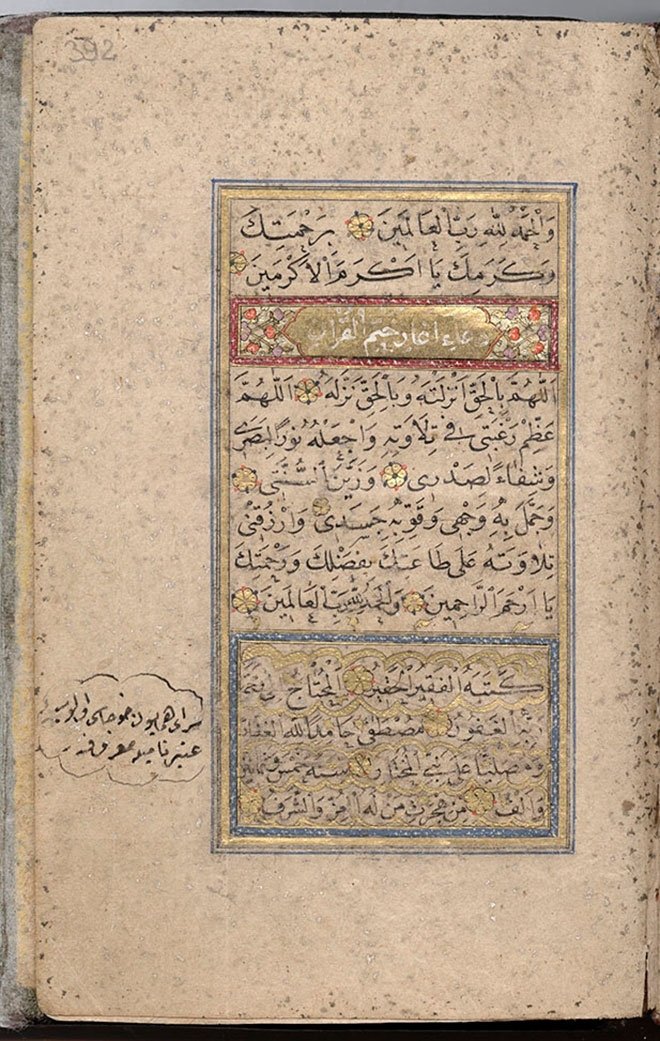 392
وَالْحَمْدُ لِلّٰهِ رَبِّ الْعَالَمِينَ بِرَحْمَتِكَ
وَكَرَمِكَ يَا اَكْرَمَ الْاَكْرَمِينَ
دعاء اغاز ختم القرآن
اَللّٰهُمَّ بِالْحَقِّ اَنْزَلْتَهُ وَبِالْحَقِّ نَزَلَ اَللّٰهُمَّ
عَظِّمْ رَغْبَتِى فِى تِلَاوَتِهِ وَاجْعَلْهُ نُورًا لِبَصَرِى
وَشِفَاءً لِصَدْرِى وَزَيِّنْ
وَجَمِّلْ بِهِ وَجْهِى وَقَوِّ بِهِ جَسَدِى وَارْزُقْنِى
تِلَاوَتَهُ عَلَى طَاعَتِكَ بِفَضْلِكَ وَرَحْمَتِكَ
يَا اَرْحَمَ الرَّاحِمِينَ وَالْحَمْدُ لِلّٰهِ رَبِّ الْعَالَمِينَ
كَتَبَهُ الْفَقِيرُ الْحَقِيرُ الْمُحْتَاجُ
رَبِّهِ الْغَفُورِ مُصْطَفٰى حَامِدًا لِلّٰهِ
وَمُصَلِّيًا عَلٰى نَبِيِّهِ الْمُخْتَارِ سَنَةِ خَمْسٍ وَثَمَانِينَ
وَاَلْفٍ مِنْ هِجْرَةِ مَنْ لَهُ الْعِزُّ وَالشَّرَفُ
سراى همايون
عنبر